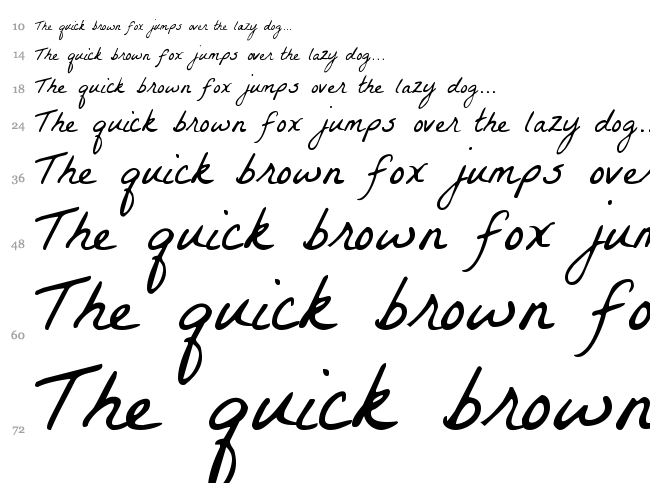 10 The quick brown fox jumps over the lazy dog...
14 The quick brown fox jumps over the lazy dog...
18 The quick brown fox jumps over the lazy dog...
24 The quick brown fox jumps over the lazy dog..
36 The quick brown fox jumps over
48 The quick brown fox jum
60 The quick brown fo
72 The quick brown